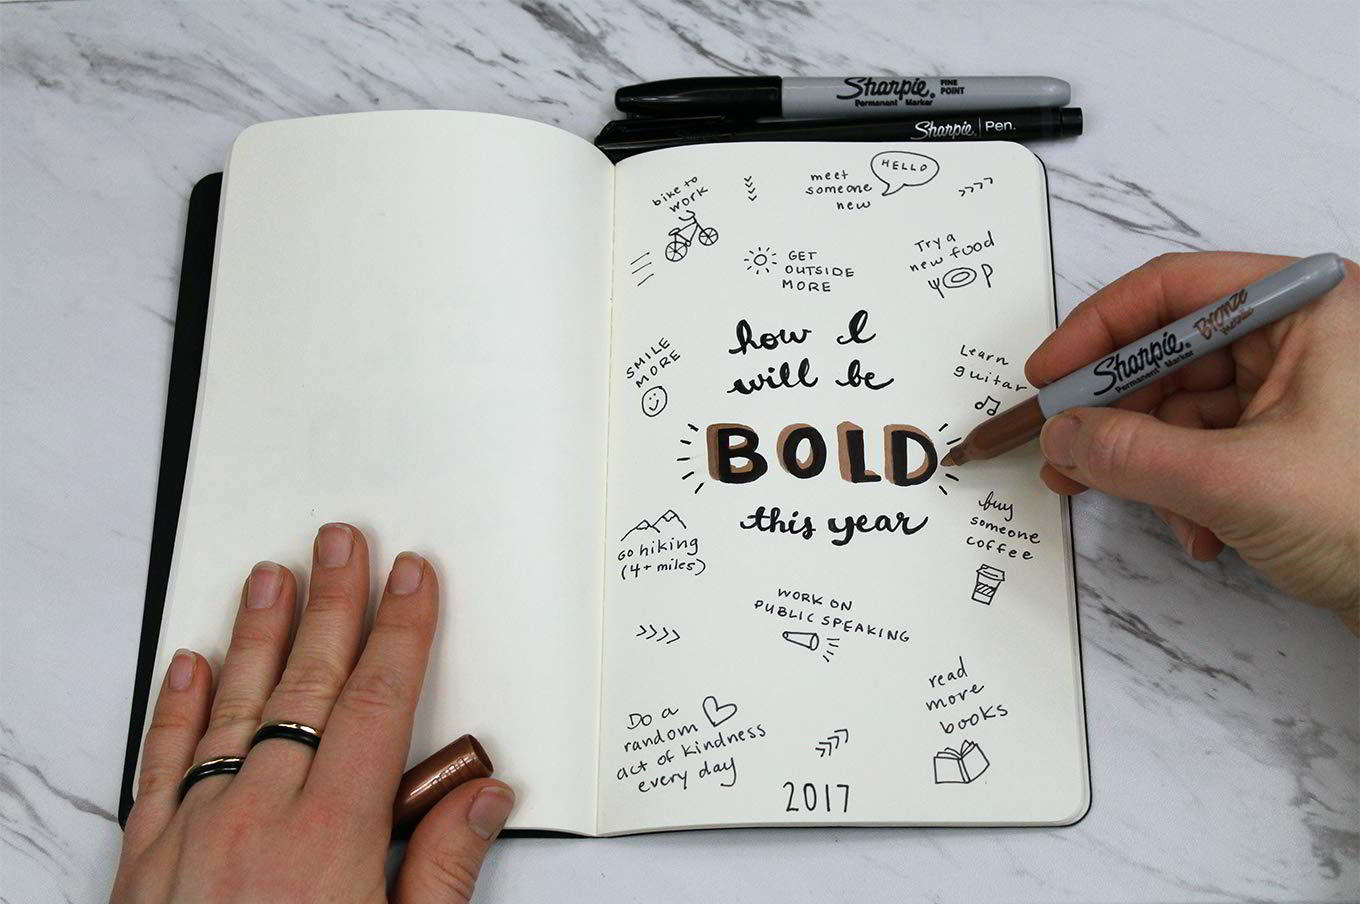 Sharpie. FINE POINT
Permanent Marker
Sharpie. | Pen.
bike to
work
meet
someone
new
HELLO
GET
OUTSIDE
MORE
Try a
new food
how I
will be
BOLD
this year
SMILE
MORE
Learn
guitar
Sharpie. Bronze
Permanent Marker
GO hiking
(4+ miles)
buy
someone
coffee
WORK ON
PUBLIC SPEAKING
Do a
random
act of kindness
every day
read
more
books
2017